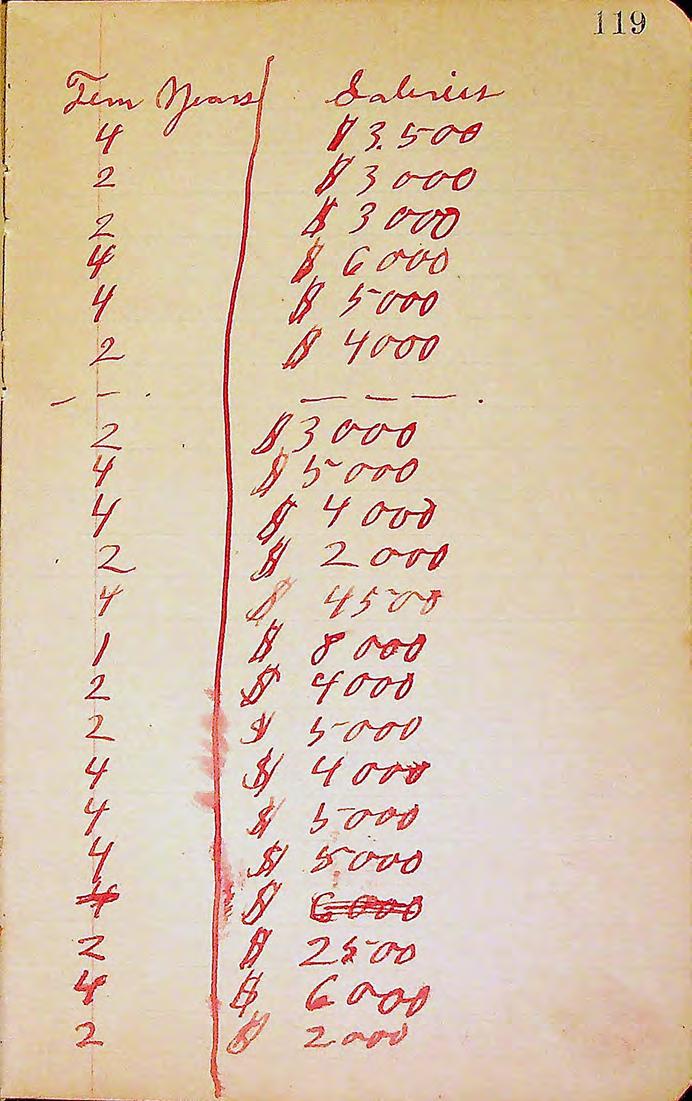 119
Term Years Salaries
4 $3.500
2 $3000
2 $3000
4 $6000
4 $5000
2 $4000
— — . — — — — .
2 $3000
4 $5000
4 $4000
2 $2000
4 $4500
1 $8000
2 $4000
2 $5000
4 $4000
4 $5000
4 $5000
4 $6000
2 $2500
4 $6000
2 $2000